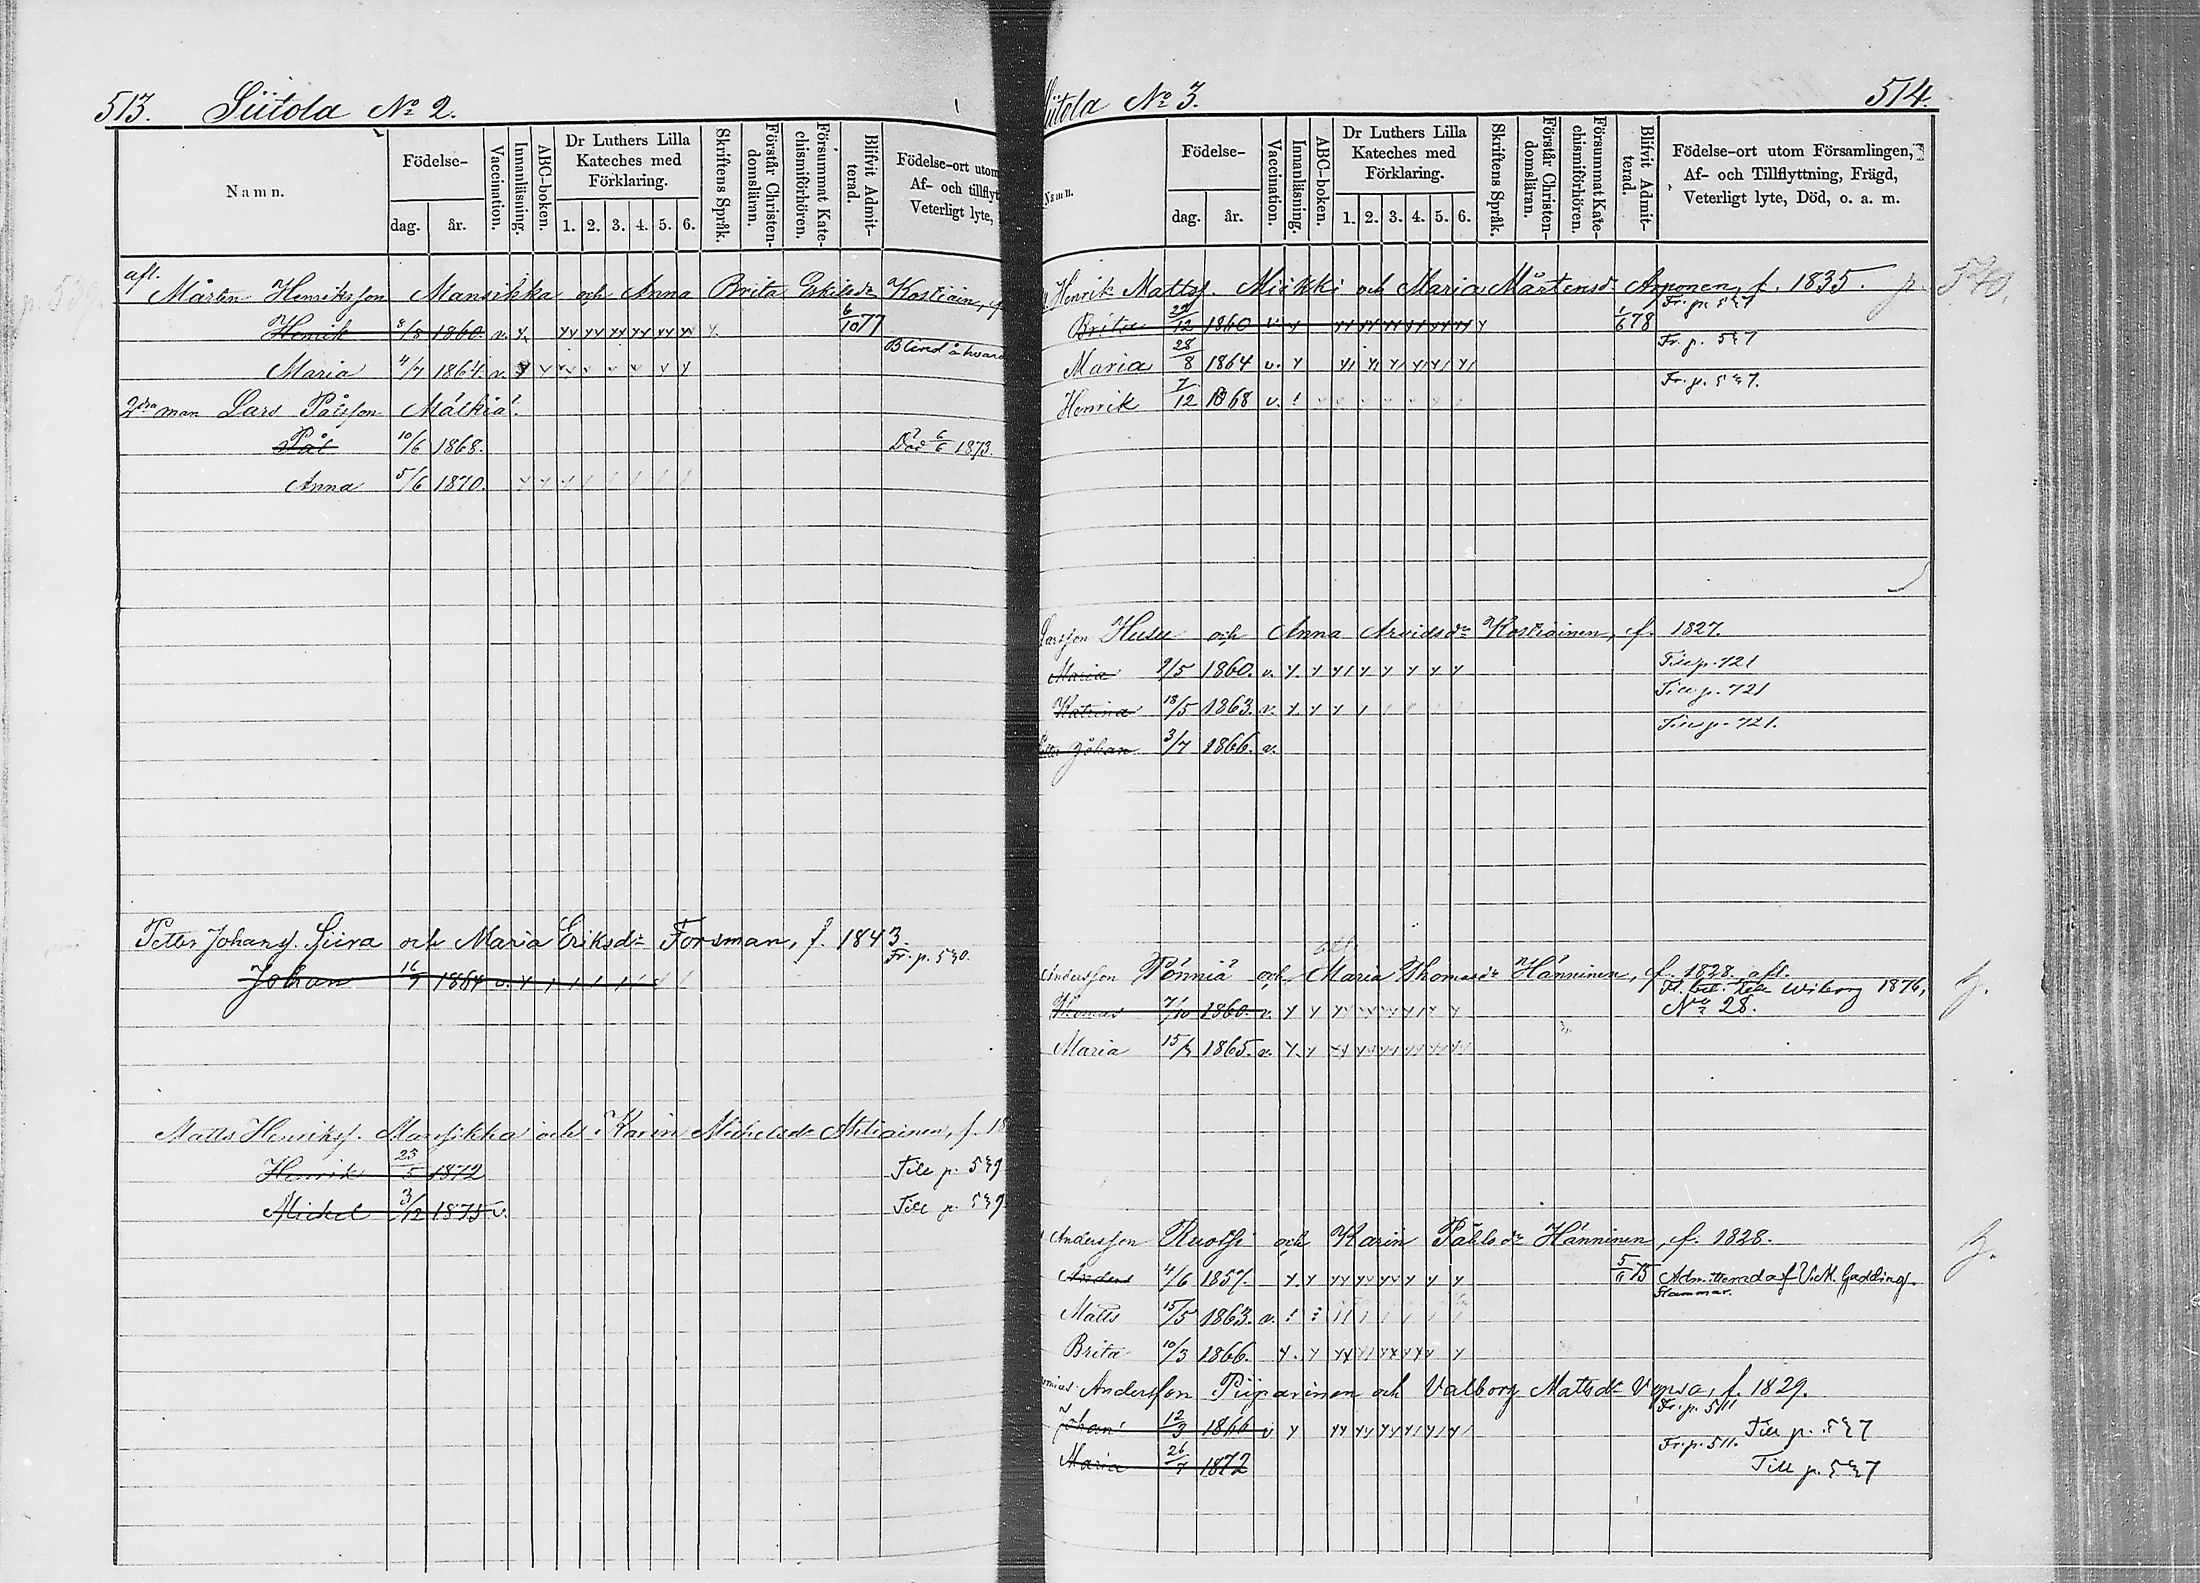 513. Siitola No 2.
Namn.
Födelse-
dag. år.
Vaccination.
Innanläsning.
ABC-boken.
Dr Luthers Lilla
Kateches med
Förklaring.
1. 2. 3. 4. 5. 6.
Skriftens Språk.
Förstår Christen-
domsläran.
Försummat Kate-
chismiförhören.
Blifvit Admit-
terad.
Födelse-ort utom
Af- och tillflyt
Veterligt lyte,
afl.
Mårten Henriksson Mansikka och Anna Brita Eskilsdr Kostiain, f
Henrik 8/8 1860. v. 6/10 77
Blind å hvar
Maria 4/7 1864. v.
2dra man Lars Pålsson Mälkiä.
Pål 10/6 1868. Död 6/6 1873.
Anna 5/6 1870.
Petter Johanss. Siira och Maria Eriksdr Forsman, f. 1843.
Fr. p. 540.
Johan 16/9 1864 v.
Matts Henrikss. Mansikka och Karin Michelsdr Ahtiainen, f. 18
Henrik 23/5 1872 Till p. 539
Michel 3/12 1875 v. Till p. 539
Siitola No 3. 514.
Namn.
Födelse-
dag. år.
Vaccination.
Innanläsning.
ABC-boken.
Dr Luthers Lilla
Kateches med
Förklaring.
1. 2. 3. 4. 5. 6.
Skriftens Språk.
Förstår Christen-
domsläran.
Försummat Kate-
chismiförhören.
Blifvit Admit-
terad.
Födelse-ort utom Församlingen,
Af- och Tillflyttning, Frägd,
Veterligt lyte, Död, o. a. m.
Henrik Mattss. Miikki och Maria Mårtensdr Arponen, f. 1835. p. 540.
Fr. p. 547
Brita 29/12 1860 v. 1/6 78
Fr. p. 547
Maria 28/8 1864 v.
Fr. p. 547.
Henrik 7/12 1868 v.
Larsson Husu och Anna Arvidsdr Kostiainen, f. 1827.
Maria 9/5 1860. v. Till p. 721
Till p. 721
Katrina 18/5 1863. v.
Till p. 721.
Petter Johan 3/7 1866. v.
afl.
Andersson Pönniä och Maria Thomasdr Hänninen, f. 1828. afl.
Wiborg 1876,
No 28.
Thomas 7/10 1860. v.
Maria 1865. v.
Andersson Ruotsi och Karin Pålsdr Hänninen, f. 1828.
Anders 4/6 1857. 5/11 75 Admitterad af V.M. Gadding.
Stammar.
Matts 15/5 1863. v.
Brita 10/3 1866.
Andersson Piiparinen och Valborg Mattsdr Vepsä, f. 1829.
Fr. p. 511
Johan 12/3 1866 v Till p. 547
Fr. p. 511.
Maria 26/7 1872 Till p. 547